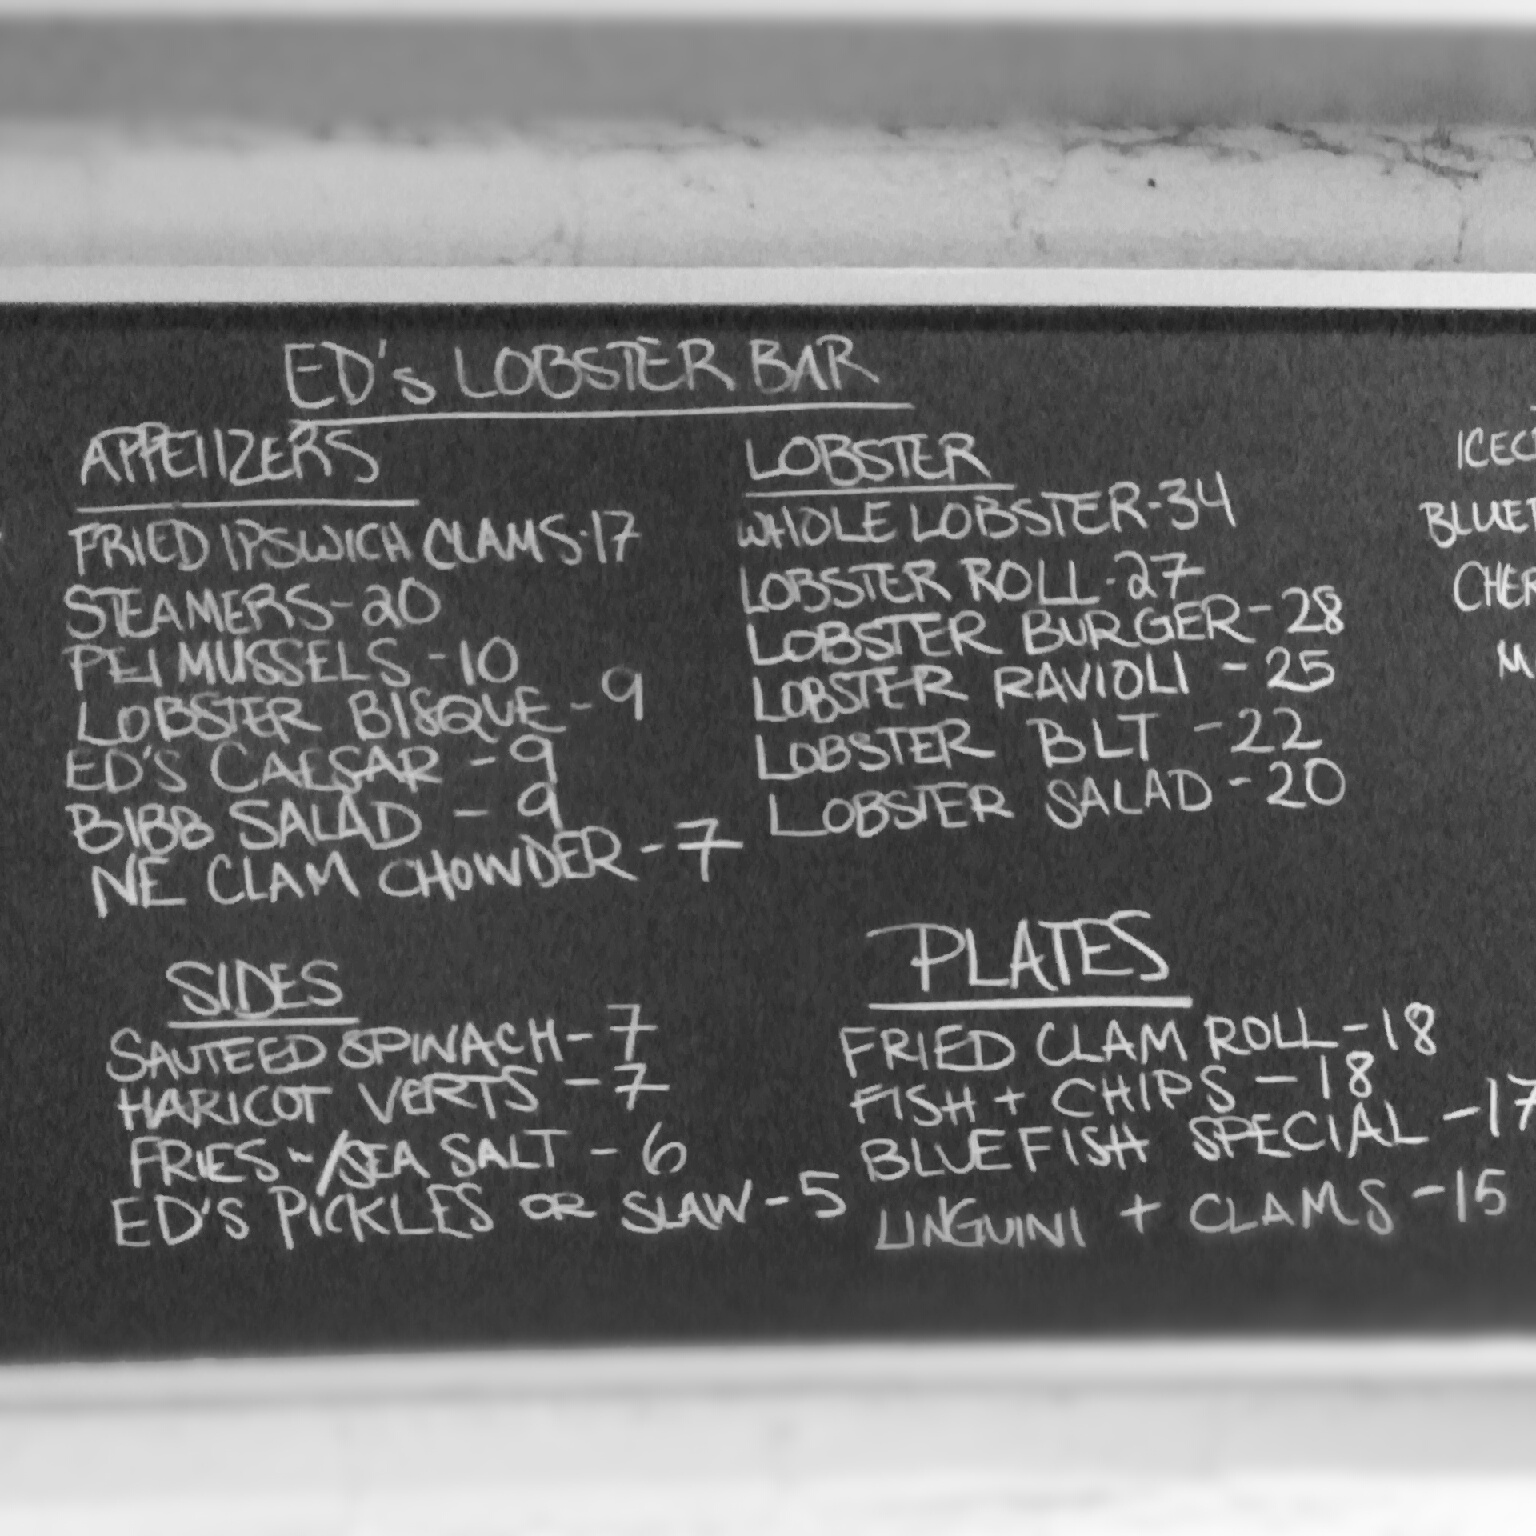 ED's LOBSTER BAR
APPETIZERS
FRIED IPSWICH CLAMS-17
STEAMERS-20
PEI MUSSELS-10
LOBSTER BISQUE-9
ED'S CAESAR-9
BIBB SALAD-9
NE CLAM CHOWDER-7
LOBSTER
WHOLE LOBSTER-34
LOBSTER ROLL-27
LOBSTER BURGER-28
LOBSTER RAVIOLI-25
LOBSTER BLT-22
LOBSTER SALAD-20
SIDES
SAUTEED SPINACH-7
HARICOT VERTS-7
FRIES ~/SEA SALT-6
ED'S PICKLES OR SLAW-5
PLATES
FRIED CLAM ROLL-18
FISH + CHIPS-18
BLUEFISH SPECIAL-17
LINGUINI + CLAMS-15